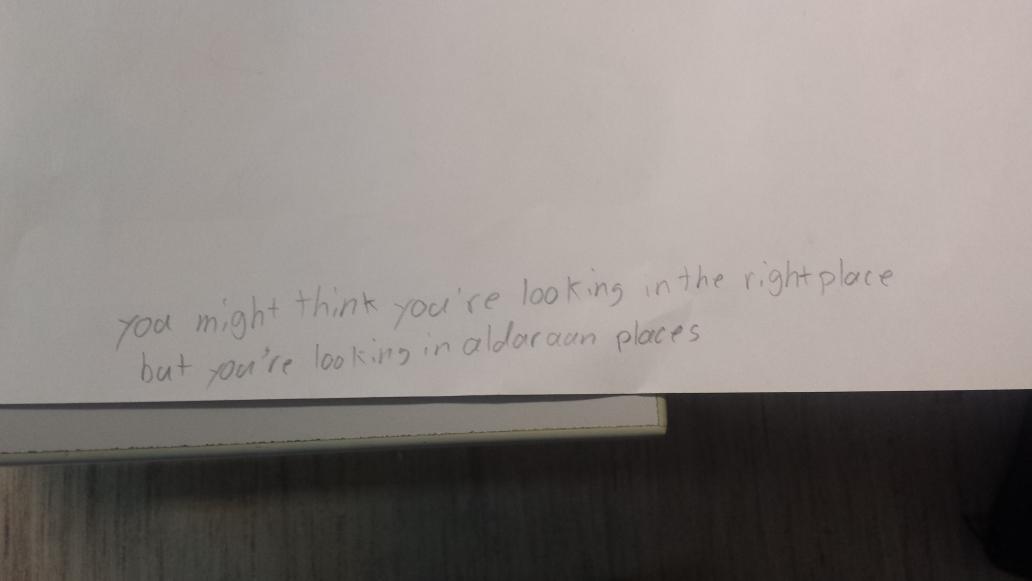 you might think you're looking in the right place
but you're looking in aldaraan places